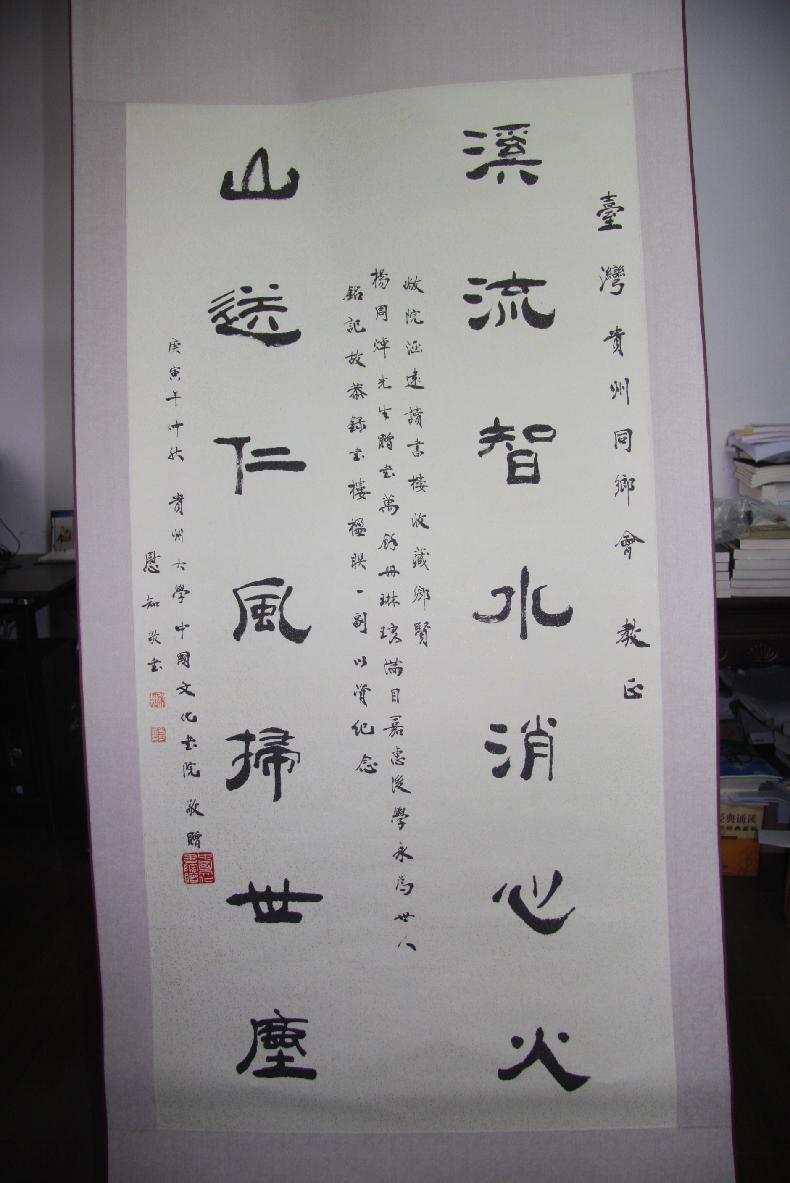 臺灣貴州同鄉會 教正
溪流智水消心火
敝院涵遠讀書樓收藏鄉賢
楊周焯先生贈書萬餘冊琳琅滿目嘉惠後學永為世人
銘記故恭錄書樓楹联一副以資纪念
山送仁風掃世塵
庚寅年仲秋 貴州大學中國文化書院 敬贈
知敬书
經典诵读